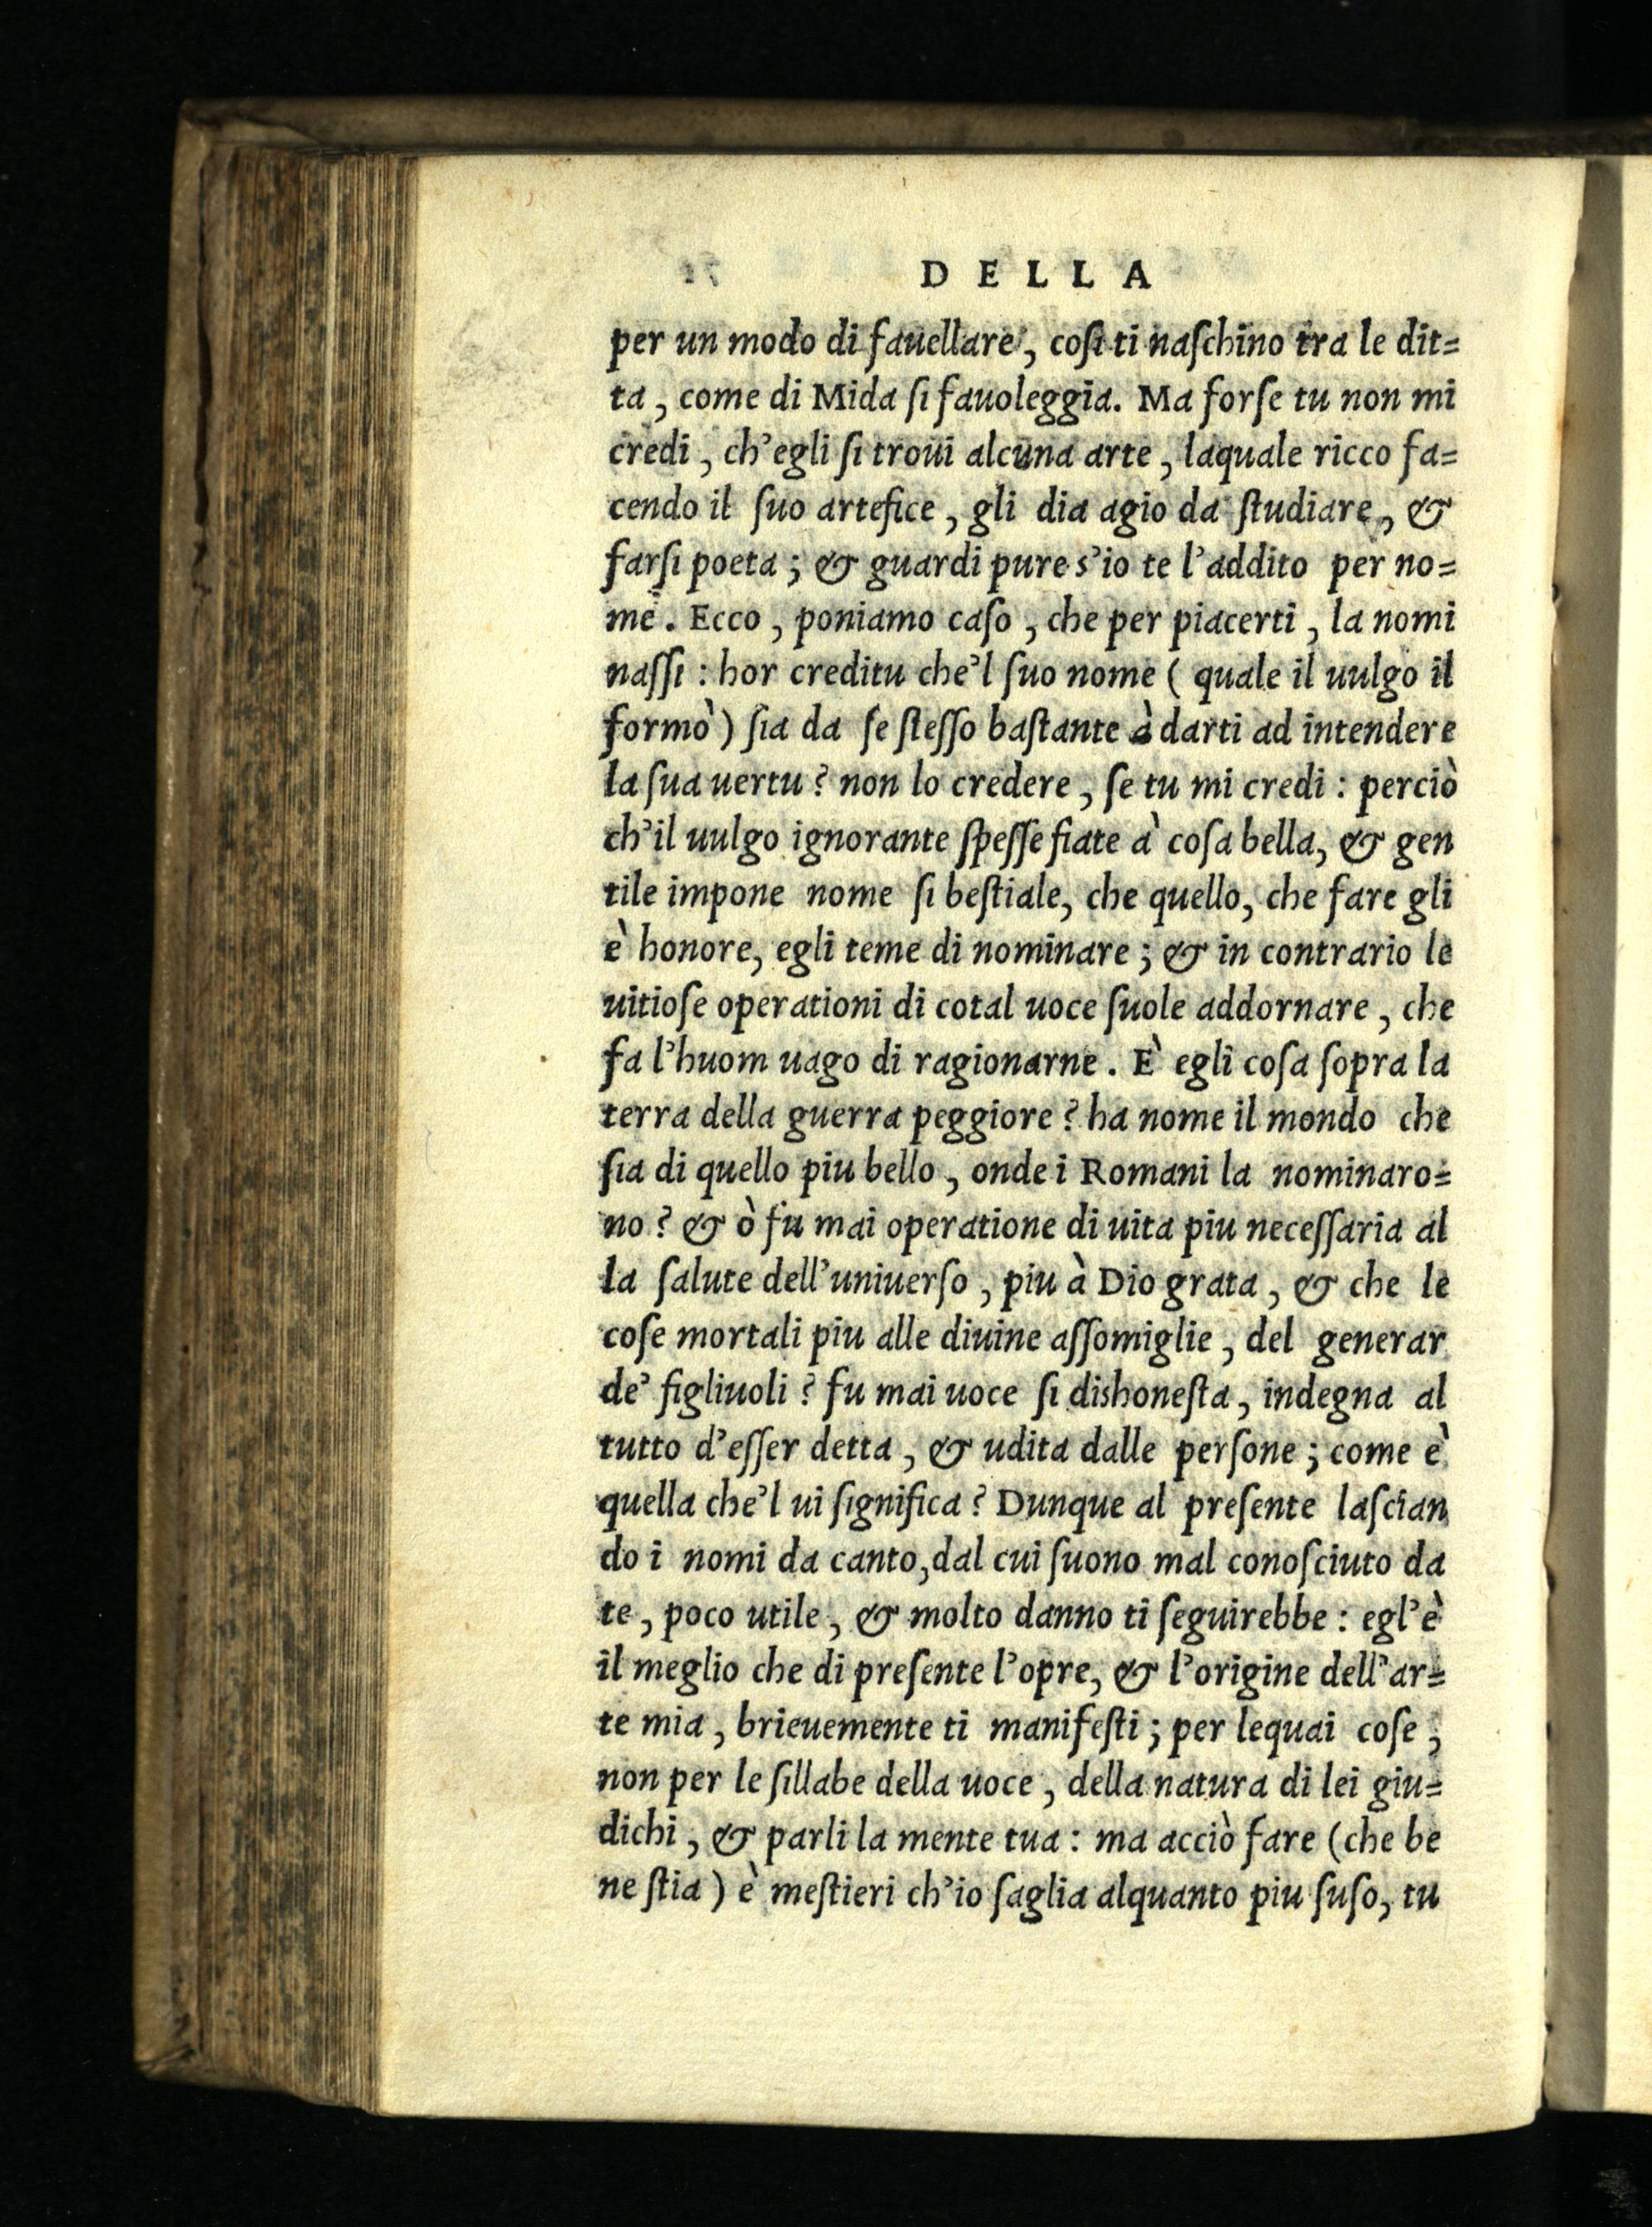 DELLA
per un modo di fauellare, coſi ti naſchino tra le dit=
ta, come di Mida ſi fauoleggia. Ma forſe tu non mi
credi, ch'egli ſi troui alcuna arte, laquale ricco fa=
cendo il ſuo artefice, gli dia agio da ſtudiare, &
farſi poeta; & guardi pure s'io te l'addito per no=
me. Ecco, poniamo caſo, che per piacerti, la nomi
naſſi: hor creditu che'l ſuo nome (quale il uulgo il
formò) ſia da ſe ſteſſo baſtante à darti ad intendere
la ſua uertu? non lo credere, ſe tu mi credi: perciò
ch'il uulgo ignorante ſpeſſe fiate à coſa bella, & gen
tile impone nome ſi beſtiale, che quello, che fare gli
è honore, egli teme di nominare; & in contrario le
uitioſe operationi di cotal uoce ſuole addornare, che
fa l'huom uago di ragionarne. È egli coſa ſopra la
terra della guerra peggiore? ha nome il mondo che
ſia di quello piu bello, onde i Romani la nominaro=
no? & ò fu mai operatione di uita piu neceſſaria al
la ſalute dell'uniuerſo, piu à Dio grata, & che le
coſe mortali piu alle diuine aſſomiglie, del generar
de' figliuoli? fu mai uoce ſi dishoneſta, indegna al
tutto d'eſſer detta, & udita dalle perſone; come è
quella che'l ui ſignifica? Dunque al preſente laſcian
do i nomi da canto, dal cui ſuono mal conoſciuto da
te, poco utile, & molto danno ti ſeguirebbe: egl'è
il meglio che di preſente l'opre, & l'origine dell'ar=
te mia, brieuemente ti manifeſti; per lequai coſe,
non per le ſillabe della uoce, della natura di lei giu=
dichi, & parli la mente tua: ma acciò fare (che be
ne ſtia) è meſtieri ch'io ſaglia alquanto piu ſuſo, tu